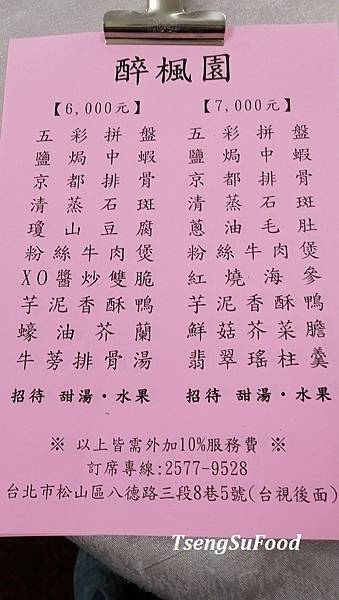 醉楓園
【6,000元】
五彩拼盤
鹽焗中蝦
京都排骨
清蒸石斑
瓊山豆腐
粉絲牛肉煲
XO醬炒雙脆
芋泥香酥鴨
蠔油芥蘭
牛蒡排骨湯
招待 甜湯·水果
【7,000元】
五彩拼盤
鹽焗中蝦
京都排骨
清蒸石斑
蔥油毛肚
粉絲牛肉煲
紅燒海參
芋泥香酥鴨
鮮菇芥菜膽
翡翠瑤柱羹
招待 甜湯·水果
※ 以上皆需外加10%服務費 ※
訂席專線:2577-9528
台北市松山區八德路三段8巷5號(台視後面)
TsengSuFood